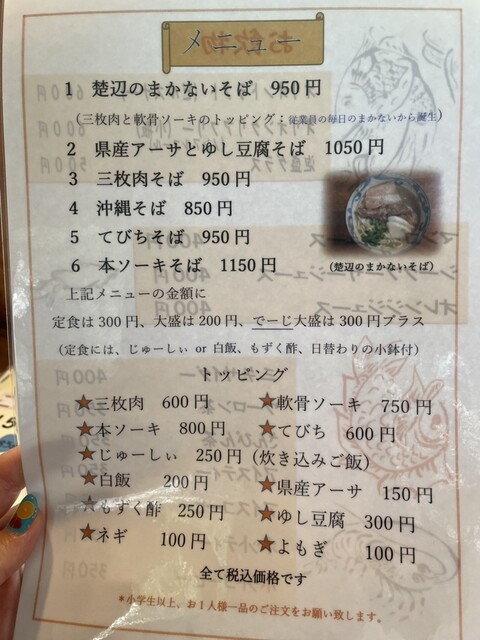 メニュー
1 楚辺のまかないそば 950円
(三枚肉と軟骨ソーキのトッピング:従業員の毎日のまかないから誕生)
2 県産アーサとゆし豆腐そば 1050円
3 三枚肉そば 950円
4 沖縄そば 850円
5 てびちそば 950円
6 本ソーキそば 1150円
(楚辺のまかないそば)
上記メニューの金額に
定食は300円、大盛は200円、でーじ大盛は300円プラス
(定食には、じゅーしぃ or 白飯、もずく酢、日替わりの小鉢付)
トッピング
★三枚肉 600円 ★軟骨ソーキ 750円
★本ソーキ 800円 ★てびち 600円
★じゅーしぃ 250円(炊き込みご飯)
★白飯 200円 ★県産アーサ 150円
★もずく酢 250円 ★ゆし豆腐 300円
★ネギ 100円 ★よもぎ 100円
全て税込価格です
*小学生以上、お1人様一品のご注文をお願い致します。